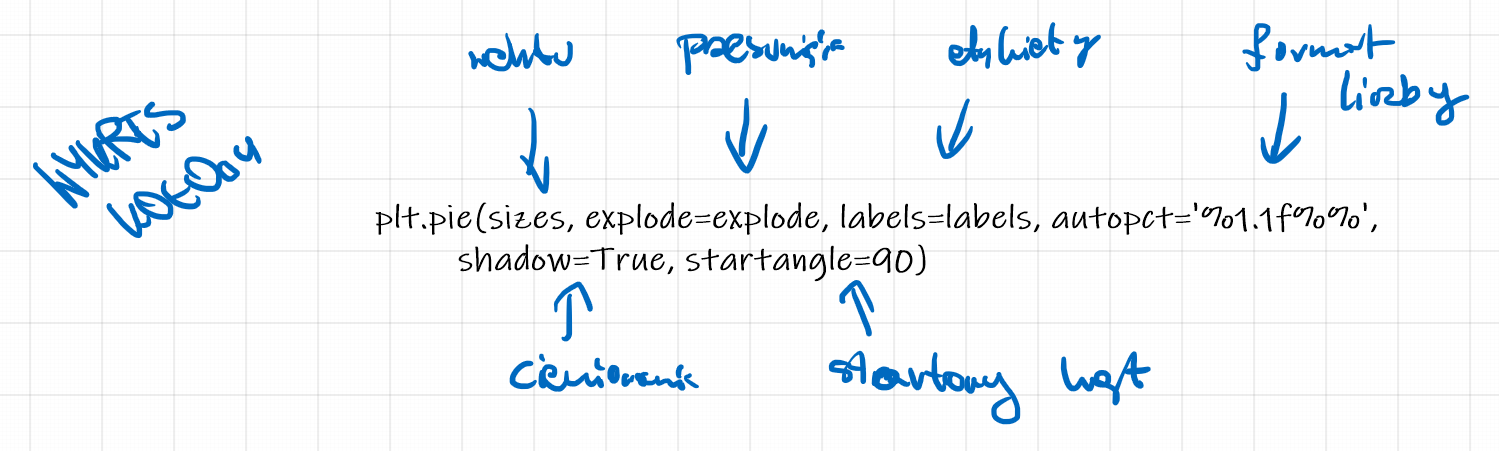 wektor przesunięcie etykiety format
liczby
WYKRES
KOŁOWY
plt.pie(sizes, explode=explode, labels=labels, autopct='%1.1f%%',
shadow=True, startangle=90)
cieniowanie startowy kąt